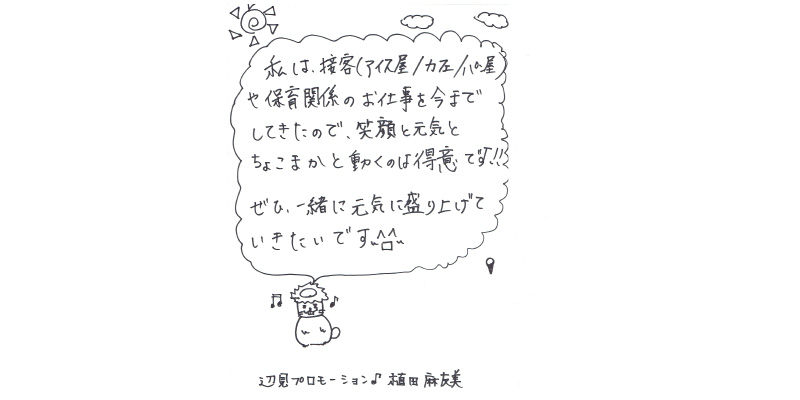 私は、接客(アイス屋/カフェ/パン屋)
や保育関係のお仕事を今まで
してきたので、笑顔と元気と
ちょこまかと動くのは得意です!!
ぜひ、一緒に元気に盛り上げて
いきたいです^□^
辺見プロモーション♪ 植田麻友美